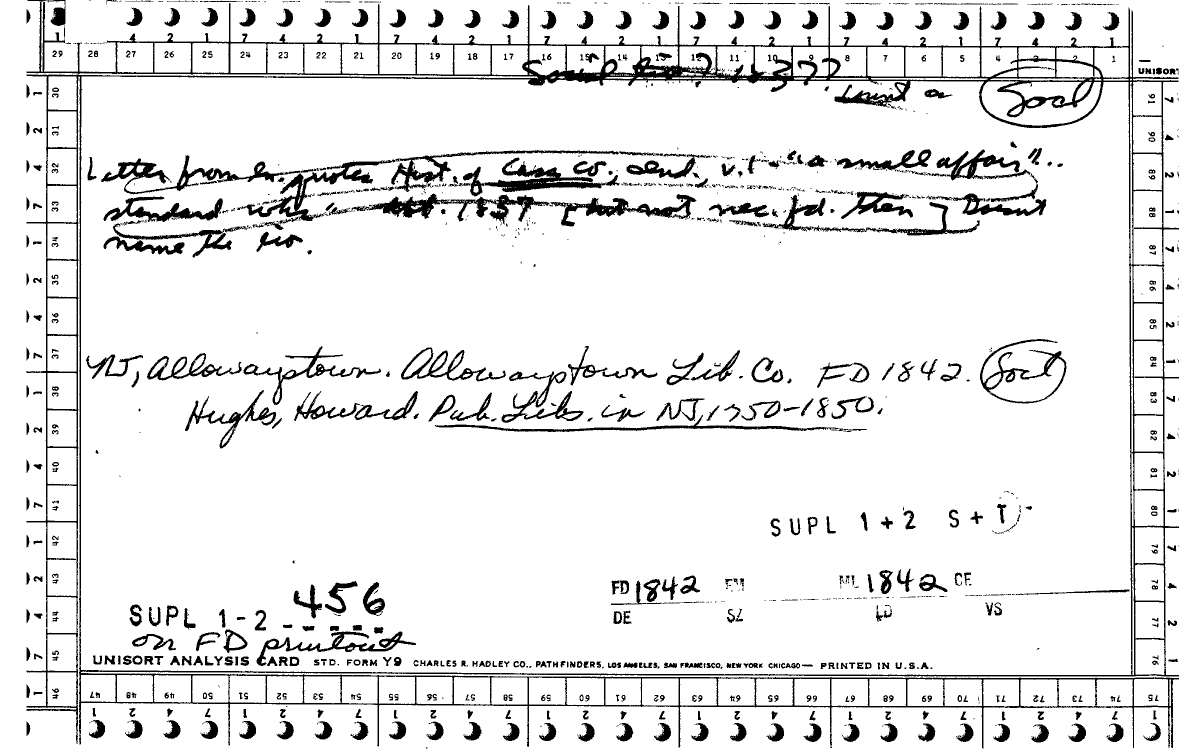 1 4 2 1 7 4 2 1 7 4 2 1 7 4 2 1 7 4 2 1 7 4 2 1 7 4 2 1
29 28 27 26 25 24 23 22 21 20 19 18 17 16 15 14 13 12 11 10 9 8 7 6 5 4 3 2 1
UNISORT
1837?
Socl
Letter from quotes Hist. of Cass Co., Ind., v. 1 - "a small affair"..
standard 1837 [but not nec. fd. then] Doesn't
name the
NJ, Allowaystown. Allowaystown Lib. Co. FD 1842. Socl
Hughes, Howard. Pub. Libs. in NJ, 1750-1850.
SUPL 1+2 S+T
FD 1842 EM ML 1842 CE
DE SZ LD VS
SUPL 1-2 - 456
on FD printout
UNISORT ANALYSIS CARD STD. FORM Y9 CHARLES R. HADLEY CO., PATHFINDERS, LOS ANGELES, SAN FRANCISCO, NEW YORK CHICAGO — PRINTED IN U.S.A.
46 47 48 49 50 51 52 53 54 55 56 57 58 59 60 61 62 63 64 65 66 67 68 69 70 71 72 73 74 75
1 2 4 7 1 2 4 7 1 2 4 7 1 2 4 7 1 2 4 7 1 2 4 7 1 2 4 7 1